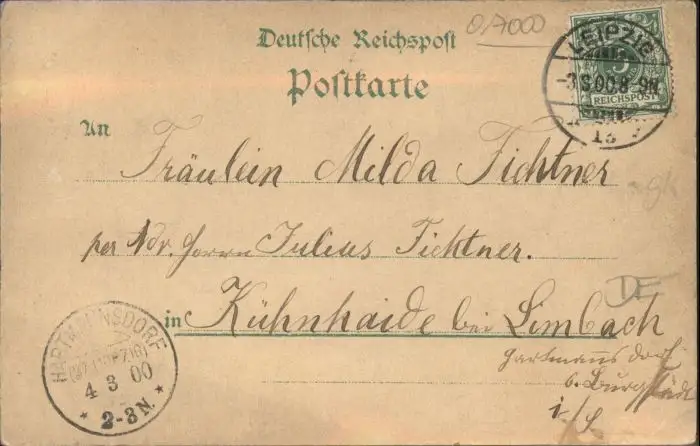 017000
Deutsche Reichspost
Postkarte
LEIPZIG
-3.3.00.8-9N.
5
REICHSPOST
13
An
Fräulein Milda Fichtner
per Adr. Herrn Julius Fichtner.
in Kühnhaide bei Limbach
Hartmannsdorf
b. Burgstädt
i/S
HARTMANNSDORF
(BZ. LEIPZIG)
4 3 00
* 2-3N. *